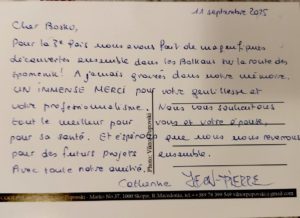 11 septembre 2025
Cher Bosko,
Pour la 3e fois nous avons fait de magnifiques
découvertes ensemble dans les Balkans sur la route des
tsomenti! A jamais gravées dans notre mémoire.
UN IMMENSE MERCI pour votre gentillesse et
votre professionnalisme. Nous vous souhaitons
tout le meilleur pour vous et votre épouse,
pour sa santé. Et espérons que nous nous reverrons
pour des futurs projets ensemble.
Avec toute notre amitié.
Catherine JEAN-PIERRE
Photo: Viktor Popovski
Popovski - Marko No 37, 1000 Skopje, R. Macedonia, tel